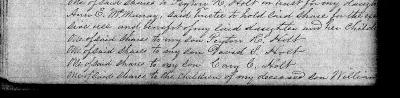 One of said shares to Peyton R. Holt in trust for my daughter
Ann E. McMurray, said trustee to hold said share for the
use and benefit of my said daughter and her Children
One of said shares to my son Peyton R. Holt
One of said shares to my son David S. Holt
One of said shares to my son Cary C. Holt
One of said shares to the children of my deceased son William